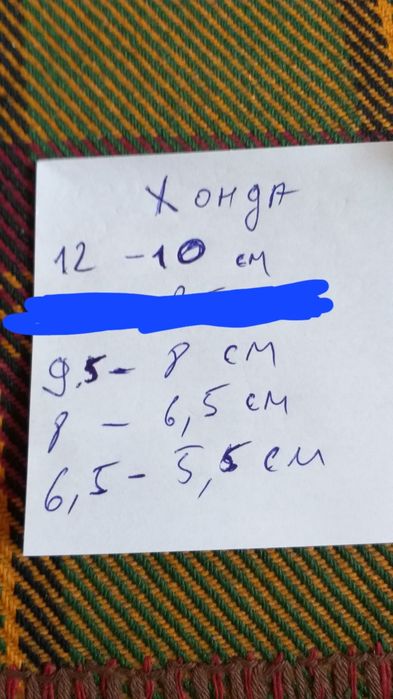 Хонда
12 - 10 см
9.5 - 8 см
8 - 6,5 см
6,5 - 5,5 см